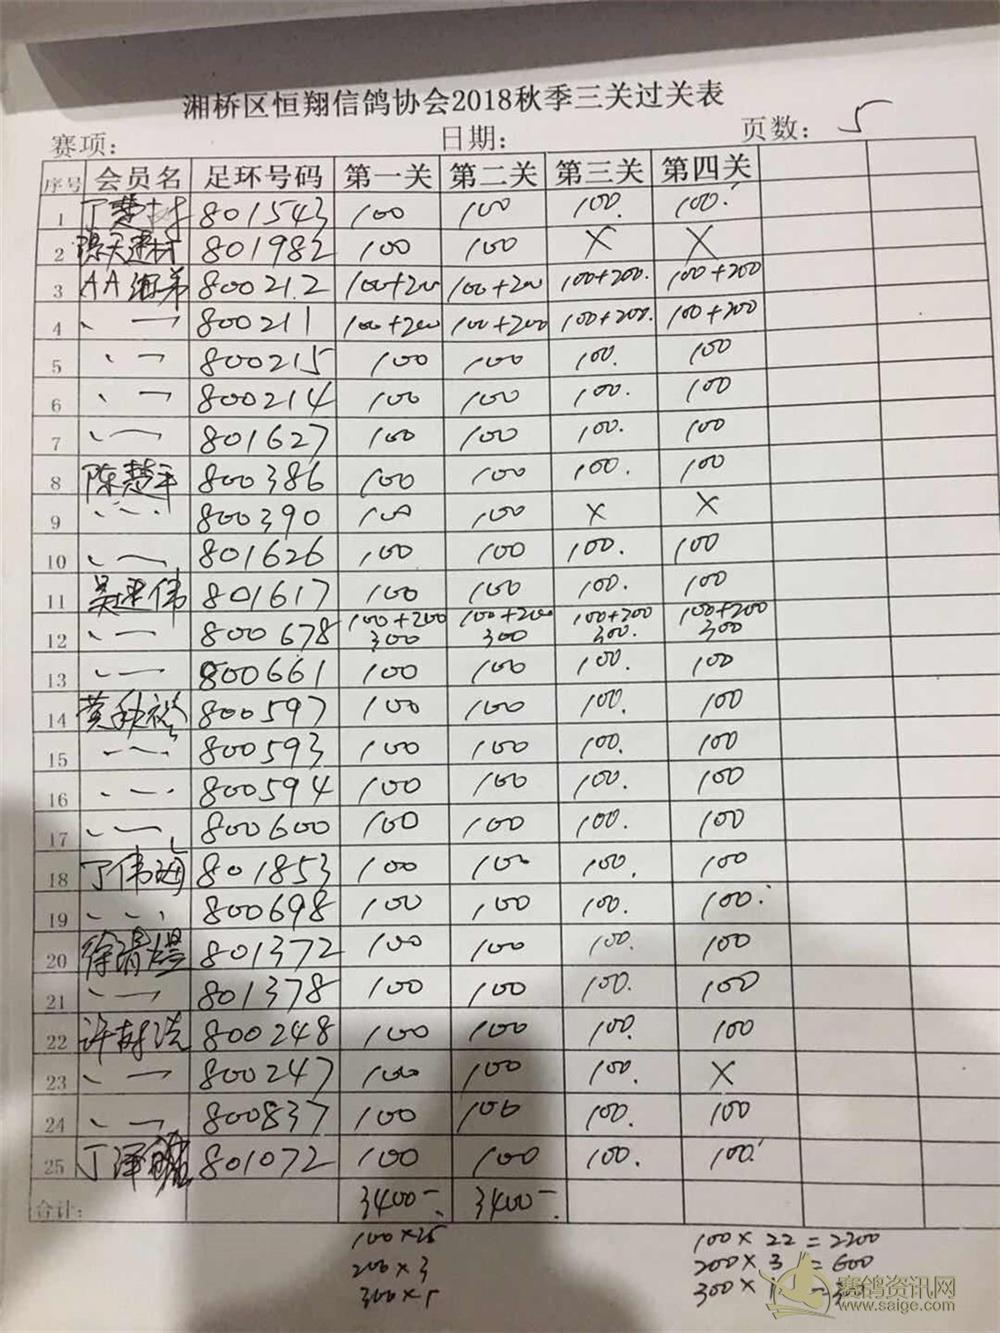 湘桥区恒翔信鸽协会2018秋季三关过关表
赛项: 日期: 页数: 5
序号 会员名 足环号码 第一关 第二关 第三关 第四关
1 丁楚 801543 100 100 100. 100.
2 801982 100 100 × ×
3 AA 弟 800212 100+200 100+200 100+200. 100+200
4 、一 800211 100+200 100+200 100+200. 100+200
5 、一 800215 100 100 100. 100
6 、一 800214 100 100 100. 100
7 、一 801627 100 100 100. 100
8 陈楚平 800386 100 100 100. 100
9 、、、 800390 100 100 × ×
10 、一 801626 100 100 100. 100
11 吴建伟 801617 100 100 100. 100
12 、一 800678 100+200 300 100+200 300 100+200 300. 100+200 300
13 、一 800661 100 100 100. 100
14 黄秋裕 800597 100 100 100. 100
15 、一 800593 100 100 100. 100
16 、一 800594 100 100 100. 100
17 、一 800600 100 100 100. 100
18 丁伟海 801853 100 100 100. 100
19 、、、 800698 100 100 100. 100.
20 徐清 801372 100 100 100. 100
21 、一 801378 100 100 100. 100
22 许树浩 800248 100 100 100. 100
23 、一 800247 100 100 100. ×
24 、一 800837 100 100 100. 100
25 丁泽 801072 100 100 100. 100.
合计: 3400一. 3400一.
100×25 100×22=2200
200×3 200×3=600
300×1 300×1=3
赛鸽资讯网
www.saige.com